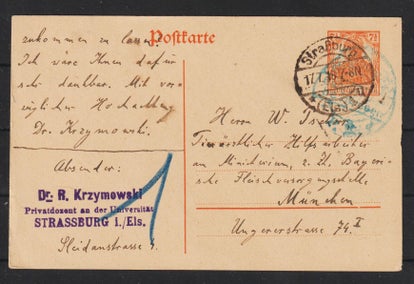 zukommen zu lassen.
Ich wäre Ihnen dafür
sehr dankbar. Mit vor-
züglicher Hochachtung
Dr. Krzymowski.
Absender:
Dr. R. Krzymowski
Privatdozent an der Universität
STRASSBURG i./Els.
Sleidanstrasse
Postkarte
7½
Straßburg
(ELS.)
Herrn W.
Tierärztlicher Hilfsarbeiter
am Ministerium, z. Zt. Bayeri-
sche Fleischversorgungsstelle
München
Ungererstrasse 74 I
1